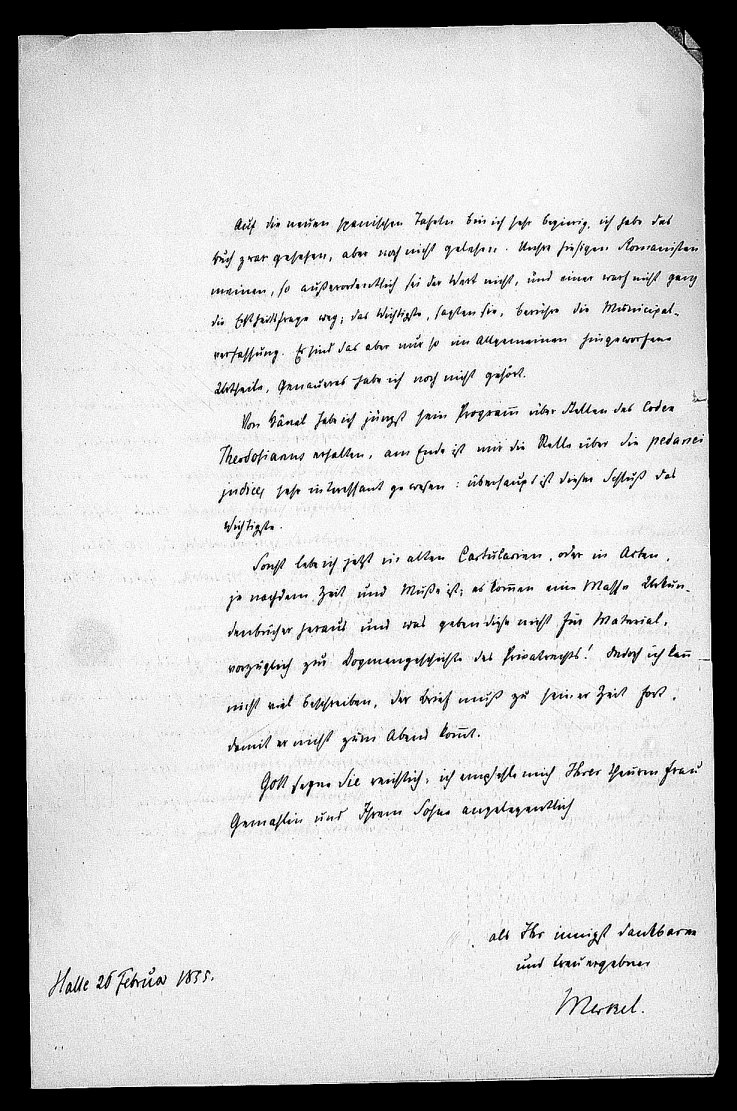 Auf die neuen spanischen Tafeln bin ich sehr begierig, ich habe das
Buch zwar gesehen, aber noch nicht gelesen. Unsre hiesigen Romanisten
meinen, so außerordentlich sei der Wert nicht, und einer warf nicht ganz
die Echtheitsfrage weg; das Wichtigste, sagten sie, berühre die Municipal-
verfassung. Es sind das aber nur so im Allgemeinen hingeworfene
Urtheile, Genaueres habe ich noch nicht gehört.
Von Hänel habe ich jüngst sein Programm über Stellen des Codex
Theodosianus erhalten, am Ende ist mir die Stelle über die pedanei
judices sehr interessant gewesen: überhaupt ist dieser Schluß das
Wichtigste.
Sonst lebe ich jetzt in alten Cartularien, oder in Acten,
je nachdem Zeit und Muße ist; es kommen eine Masse Urkun-
denbücher heraus und was geben diese nicht für Material,
vorzüglich zur Dogmengeschichte des Privatrechts! Jedoch ich kann
nicht viel beschreiben, der Brief muß zu seiner Zeit fort,
damit er nicht zum Abend kommt.
Gott segne Sie reichlich, ich empfehle mich Ihrer theuren Frau
Gemahlin und Ihrem Sohne angelegentlich
als Ihr innigst dankbarer
und treuergebner
Merkel.
Halle 26 Februar 1855.